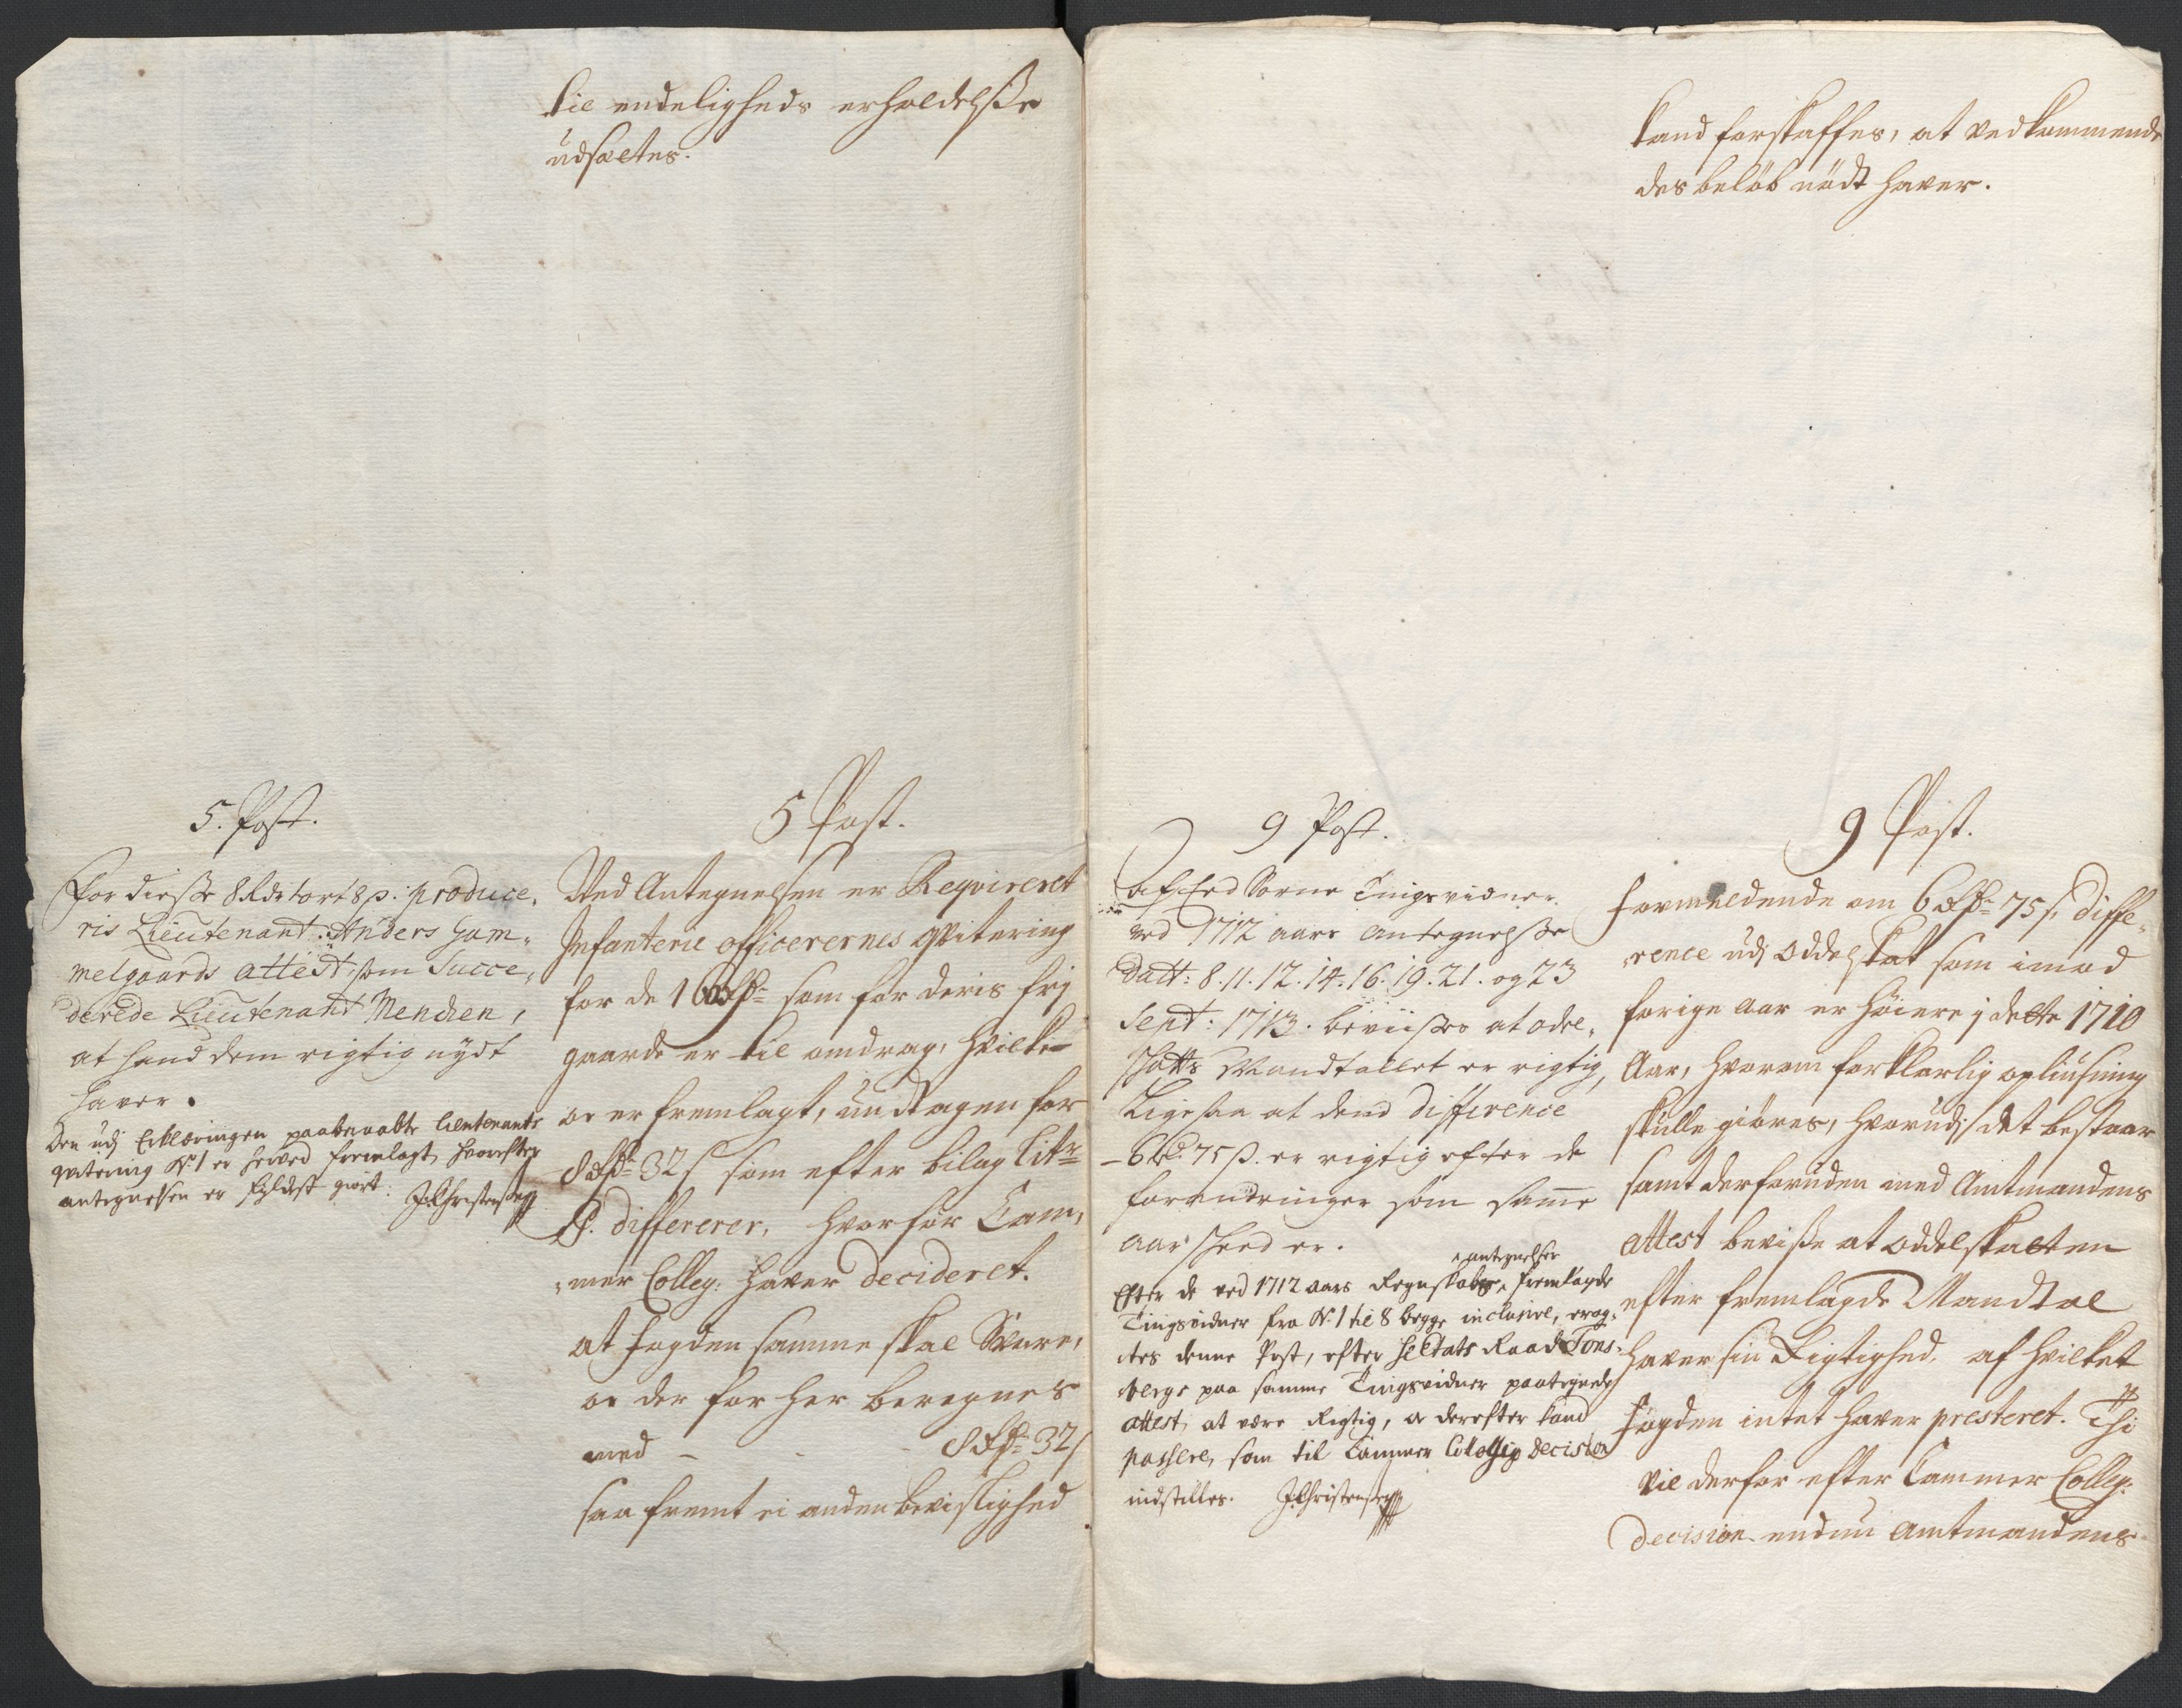 til endeligheds erholdelsse
udsættes.
5. Post.
For diesse 8 Rdr 1 ort 8 s: produce,
ris Lieutenant Anders Gam,,
melgaards attest, som Succe,
derede Lieutenant Mencken,
at hand dem rigtig nydt
haver.
Den udj Erklæringen paaberaabte Lieutenants
qvitering No 1 er herved fremlagt, hvorefter
antegnelsen er fyldest giort. J. Christensen
5 Post.
Ved Antegnelsen er Reqvireret
Infanterie officerernes qvitering
for de 16 Rdr som for deris frj
gaarde er til omdrag, hvilke
oc er fremlagt, undtagen for
8 Rdr 32 s som efter bilag Litr
differerer, hvorfor Cam,
mer Colleg: haver decideret.
at fogden samme skal Svare,
oc der for her beregnes
med - - 8 Rdr 32 s
saa fremt ei anden bevislighed
kand forskaffes, at vedkommende
des beløb nødt haver.
9 Post.
Tingsvidner
ved 1712 aars antegnelsse
Datt: 8. 11. 12. 14. 16. 19. 21. og 23
Sept: 1713. beviisses at odel,
skatts Mandtallet er rigtig,
Ligesaa at dend difference
6 Rd 75 s. er rigtig efter de
forandringer som samme
aar skeed er.
Efter de ved 1712 aars Regnskabs antegnelser fremlagde
Tingsvidner fra No 1 til 8 begge inclusive, erag,
tes denne Post, efter Raad Tons,
bergs paa samme Tingsvidner paategnede
attest, at være Rigtig, oc derefter kand
passere, som til Cammer Collegii Decision
indstilles. J. Christensen
9 Post.
Formeldende om 6 Rdr 75 s. diffe,
rence udj oddelskat som imod
forige aar er høiere j dette 1710
Aar, hvorom forklarlig opliusning
skulle giøres, hvorudj det bestaar
samt derforuden med Amtmandens
attest bevisse at oddelskatten
efter fremlagde Mandtal
haver sin Rigtighed, af hvilket
fogden intet haver presteret. Thi
vil derfor efter Cammer Colleg:
Decision endnu Amtmandens